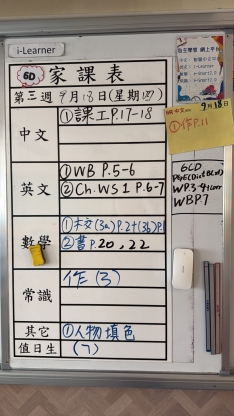 i-Learner
6D 家課表
第三週 9月18日(星期四)
中文
①課工P.17-18
英文
①WB P.5-6
②Ch.WS1 P.6-7
數學
①未交(3a)P.2+(3b)P.1
②書P.20,22
常識
作(3)
其它
①人物填色
值日生
(7)
自主學習 網上平台
9月18日
①作P.11
6CD
WP.3-4
WBP.7